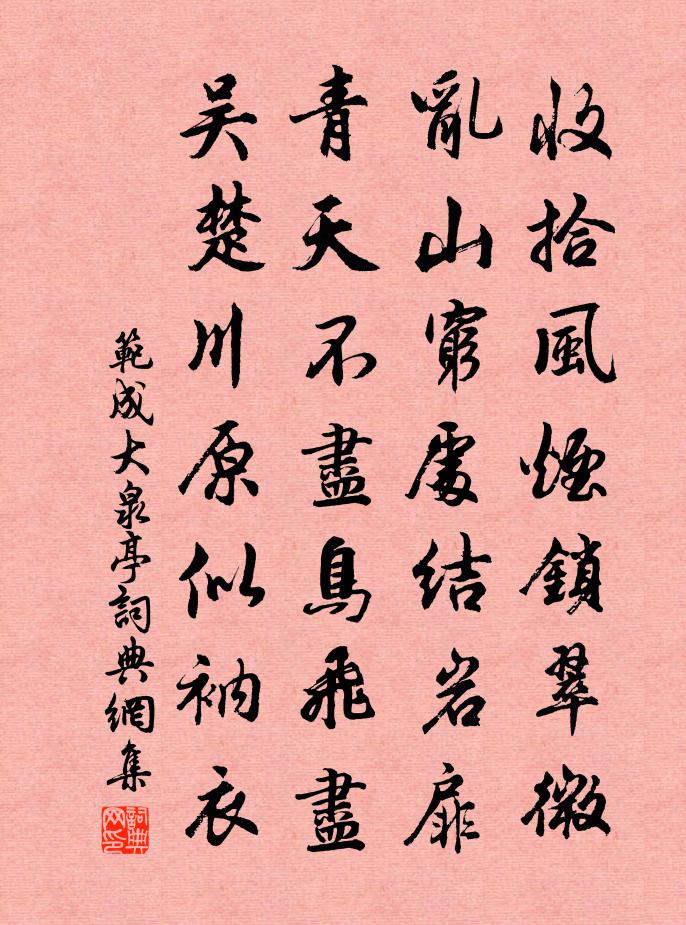 收拾風煙鎖翠微
亂山窮處結岩扉
青天不盡鳥飛盡
吳楚川原似衲衣
範成大泉亭詞典網集
詞典网印